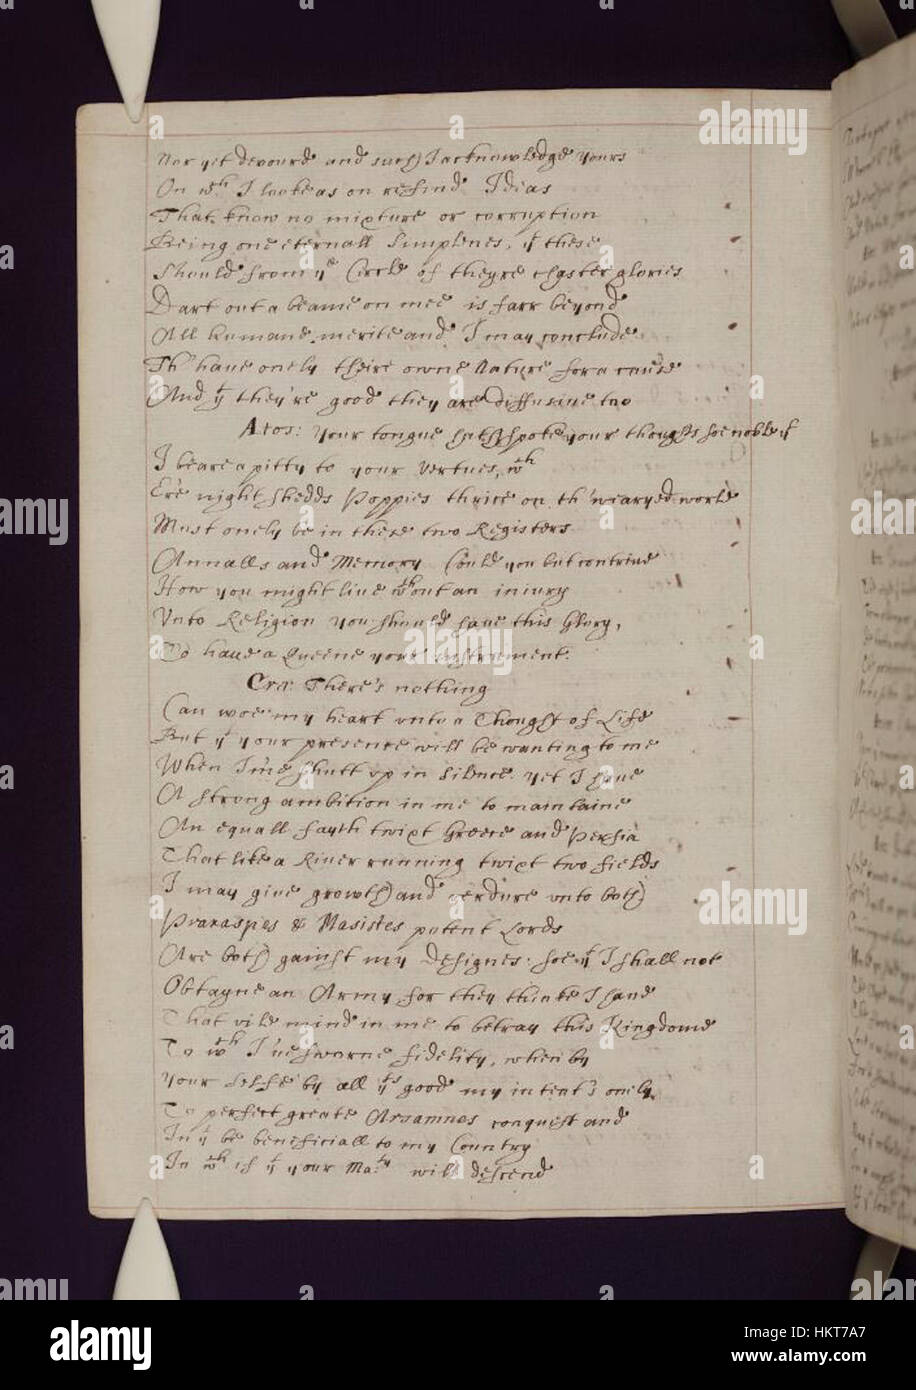 Nor yet devourd and such I acknowledge yours
On wch I looke as on refind Ideas
That know no mixture or corruption
Being one eternall Simplenes, yf these
Should from ye Circle of theyre chaster glories
Dart out a beame on mee is farr beyond
All humane merite and I may conclude
Th' haue onely theire owne Nature for a cause
And yt they're good they are diffusiue too
Atos: your tongue hath spoke your thoughts soe noble yt
I beare a pitty to your vertues, wch
Ere night shedds Poppies thrice on th' wearyed world
Must onely be in these two Registers
Annalls and Memory Could you but contriue
How you might liue wthout an iniury
Vnto Religion you should haue this Glory,
To haue a Queene your instrument.
Cra: There's nothing
Can woe my heart vnto a Thought of Life
But yt your presence will be wanting to me
When I'me shutt vp in Silence. yet I haue
A strong ambition in me to maintaine
An equall fayth twixt Greece and Persia
That like a River running twixt two fields
I may giue growth and verdure vnto both
Praxaspes & Masistes potent Lords
Are both gainst my designes: soe yt I shall not
Obtayne an Army for they thinke I haue
That vile mind in me to betray this Kingdome
To wch I'ue sworne fidelity, when by
your selfe by all yts good my intent's onely
To perfect greate Arsamnes conquest and
In yt be beneficiall to my Country
In wch if yt your Maty will descend
alamy
Image ID: HKT7A7
www.alamy.com